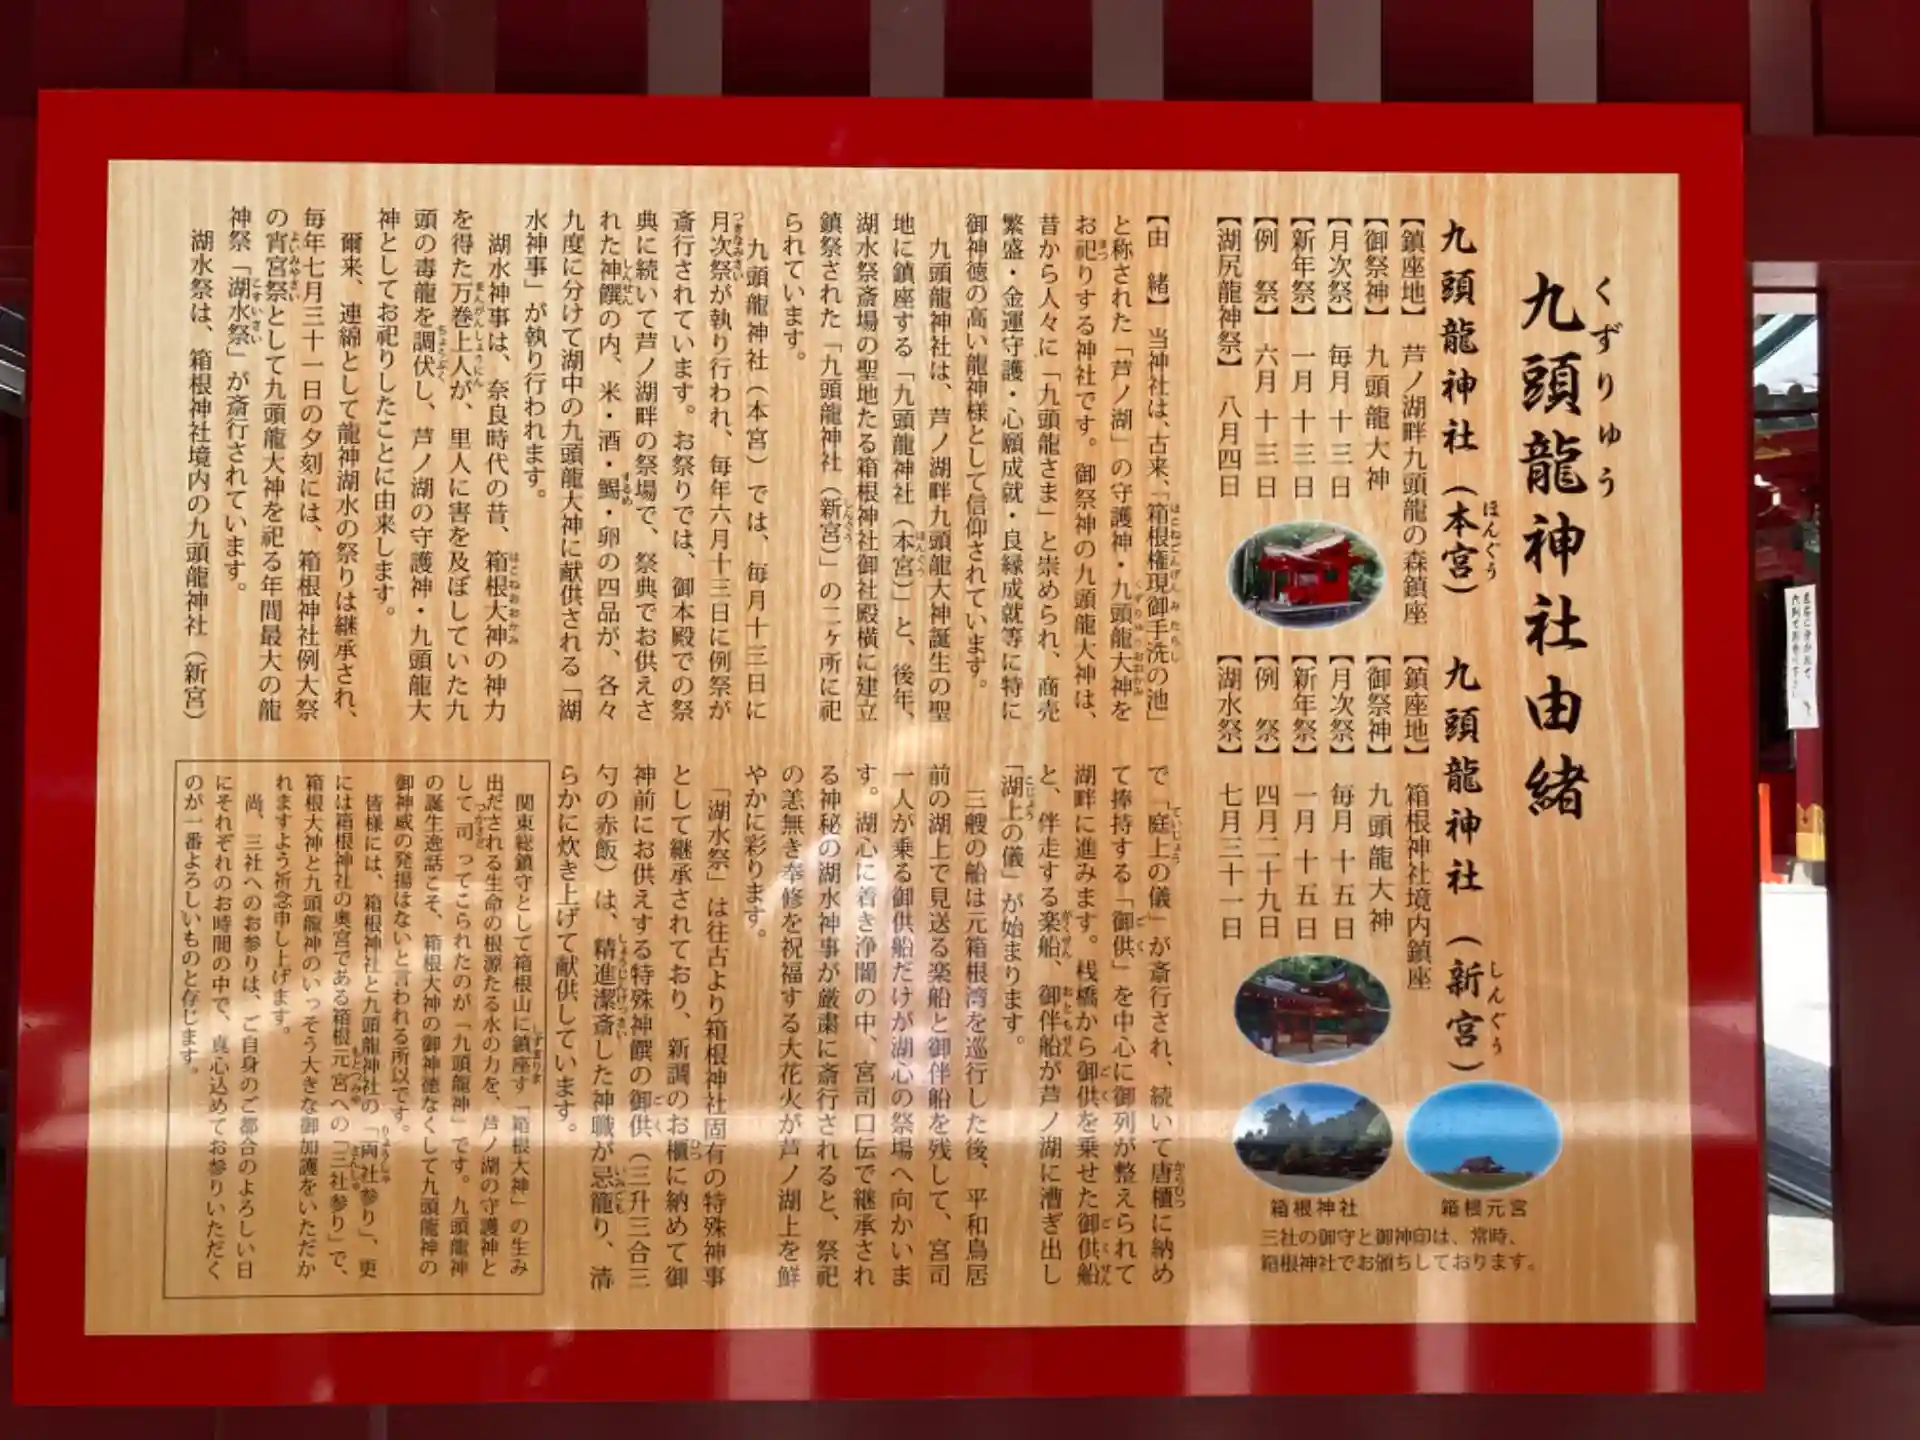 くずりゅう
九頭龍神社由緒
九頭龍神社（本宮）
ほんぐう
【鎮座地】 芦ノ湖畔九頭龍の森鎮座
【御祭神】 九頭龍大神
【月次祭】 毎月十三日
【新年祭】 一月十三日
【例　祭】 六月十三日
【湖尻龍神祭】 八月四日
九頭龍神社（新宮）
しんぐう
【鎮座地】 箱根神社境内鎮座
【御祭神】 九頭龍大神
【月次祭】 毎月十五日
【新年祭】 一月十五日
【例　祭】 四月二十九日
【湖水祭】 七月三十一日
箱根元宮
箱根神社
三社の御守と御神印は、常時、
箱根神社でお頒ちしております。
【由　緒】　当神社は、古来、「箱根権現御手洗の池」
と称された「芦ノ湖」の守護神・九頭龍大神を
お祀りする神社です。御祭神の九頭龍大神は、
昔から人々に「九頭龍さま」と崇められ、商売
繁盛・金運守護・心願成就・良縁成就等に特に
御神徳の高い龍神様として信仰されています。
九頭龍神社は、芦ノ湖畔九頭龍大神誕生の聖
地に鎮座する「九頭龍神社（本宮）」と、後年、
湖水祭斎場の聖地たる箱根神社御社殿横に建立
鎮祭された「九頭龍神社（新宮）」の二ヶ所に祀
られています。
九頭龍神社（本宮）では、毎月十三日に
月次祭が執り行われ、毎年六月十三日に例祭が
斎行されています。お祭りでは、御本殿での祭
典に続いて芦ノ湖畔の祭場で、祭典でお供えさ
れた神饌の内、米・酒・鯣・卵の四品が、各々
九度に分けて湖中の九頭龍大神に献供される「湖
水神事」が執り行われます。
湖水神事は、奈良時代の昔、箱根大神の神力
を得た万巻上人が、里人に害を及ぼしていた九
頭の毒龍を調伏し、芦ノ湖の守護神・九頭龍大
神としてお祀りしたことに由来します。
爾来、連綿として龍神湖水の祭りは継承され、
毎年七月三十一日の夕刻には、箱根神社例大祭
の宵宮祭として九頭龍大神を祀る年間最大の龍
神祭「湖水祭」が斎行されています。
湖水祭は、箱根神社境内の九頭龍神社（新宮）
で「庭上の儀」が斎行され、続いて唐櫃に納め
て捧持する「御供」を中心に御列が整えられて
湖畔に進みます。桟橋から御供を乗せた御供船
と、伴走する楽船、御伴船が芦ノ湖に漕ぎ出し
「湖上の儀」が始まります。
三艘の船は元箱根湾を巡行した後、平和鳥居
前の湖上で見送る楽船と御伴船を残して、宮司
一人が乗る御供船だけが湖心の祭場へ向かいま
す。湖心に着き浄闇の中、宮司口伝で継承され
る神秘の湖水神事が厳粛に斎行されると、祭祀
の恙無き奉修を祝福する大花火が芦ノ湖上を鮮
やかに彩ります。
「湖水祭」は往古より箱根神社固有の特殊神事
として継承されており、新調のお櫃に納めて御
神前にお供えする特殊神饌の御供（三升三合三
勺の赤飯）は、精進潔斎した神職が忌籠り、清
らかに炊き上げて献供しています。
関東総鎮守として箱根山に鎮座す「箱根大神」の生み
出だされる生命の根源たる水の力を、芦ノ湖の守護神と
して司ってこられたのが「九頭龍神」です。九頭龍神
の誕生逸話こそ、箱根大神の御神徳なくして九頭龍神の
御神威の発揚はないと言われる所以です。
皆様には、箱根神社と九頭龍神社の「両社参り」、更
には箱根神社の奥宮である箱根元宮への「三社参り」で、
箱根大神と九頭龍神のいっそう大きな御加護をいただか
れますよう祈念申し上げます。
尚、三社へのお参りは、ご自身のご都合のよろしい日
にそれぞれのお時間の中で、真心込めてお参りいただく
のが一番よろしいものと存じます。